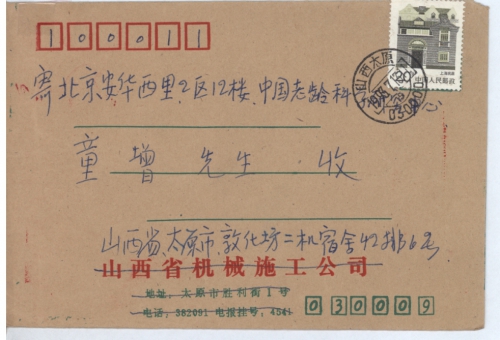 100011
上海民居
中国人民邮政
山西太原
1993
寄北京安华西里2区12楼、中国老龄科
童增 先生 收
山西省太原市敦化坊二机宿舍42排6号
山西省机械施工公司
地址：太原市胜利街1号
电话：382091 电报挂号：4541
030009